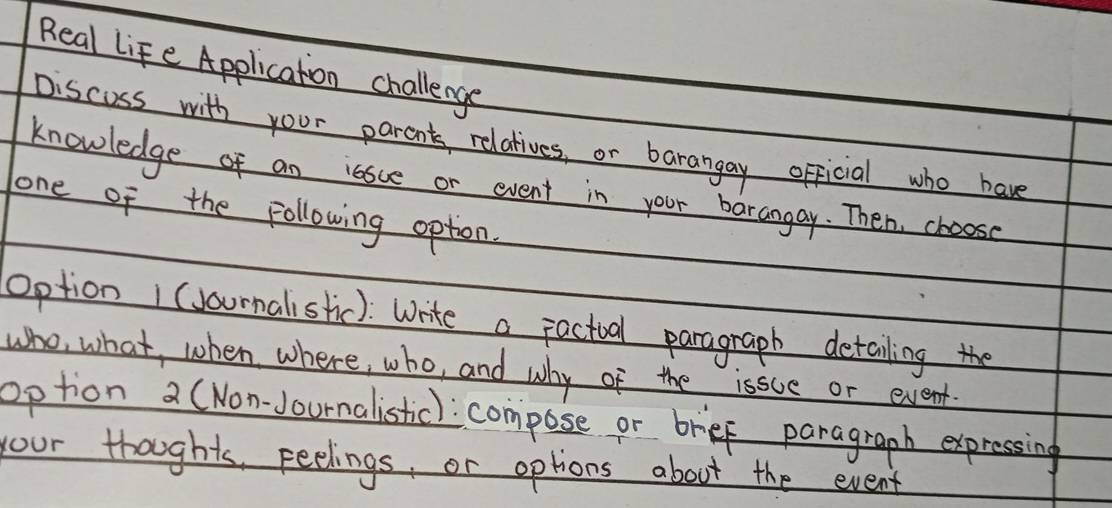 Real Life Application challenge
Discuss with your parents, relatives, or barangay official who have
knowledge of an issue or event in your barangay. Then, choose
one of the following option.
Option 1 (Journalistic): Write a factual paragraph detailing the
who, what, when, where, who, and why of the issue or event.
option 2 (Non-Journalistic): compose or brief paragraph expressing
your thoughts, feelings, or options about the event